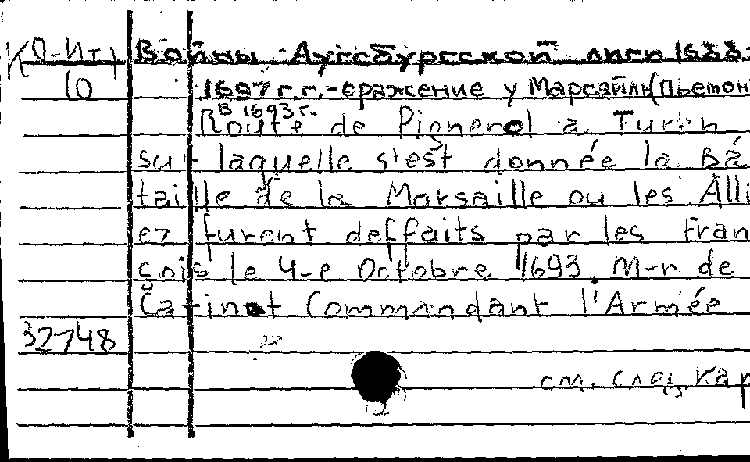 К О-Ит)
10
Войны Аугсбургской лиги 1688-
1697 г.г.-сражение у Марсайли(Пьемон
в 1693 г.
Route de Pignerol a Turin
sur laquelle s'est donnée la Ba
taille de la Marsaille ou les Alli
ez furent deffaits par les Fran
çois le 4-e Octobre 1693. M-r de
Catinat Commandant l'Armée
32748
см. след. кар